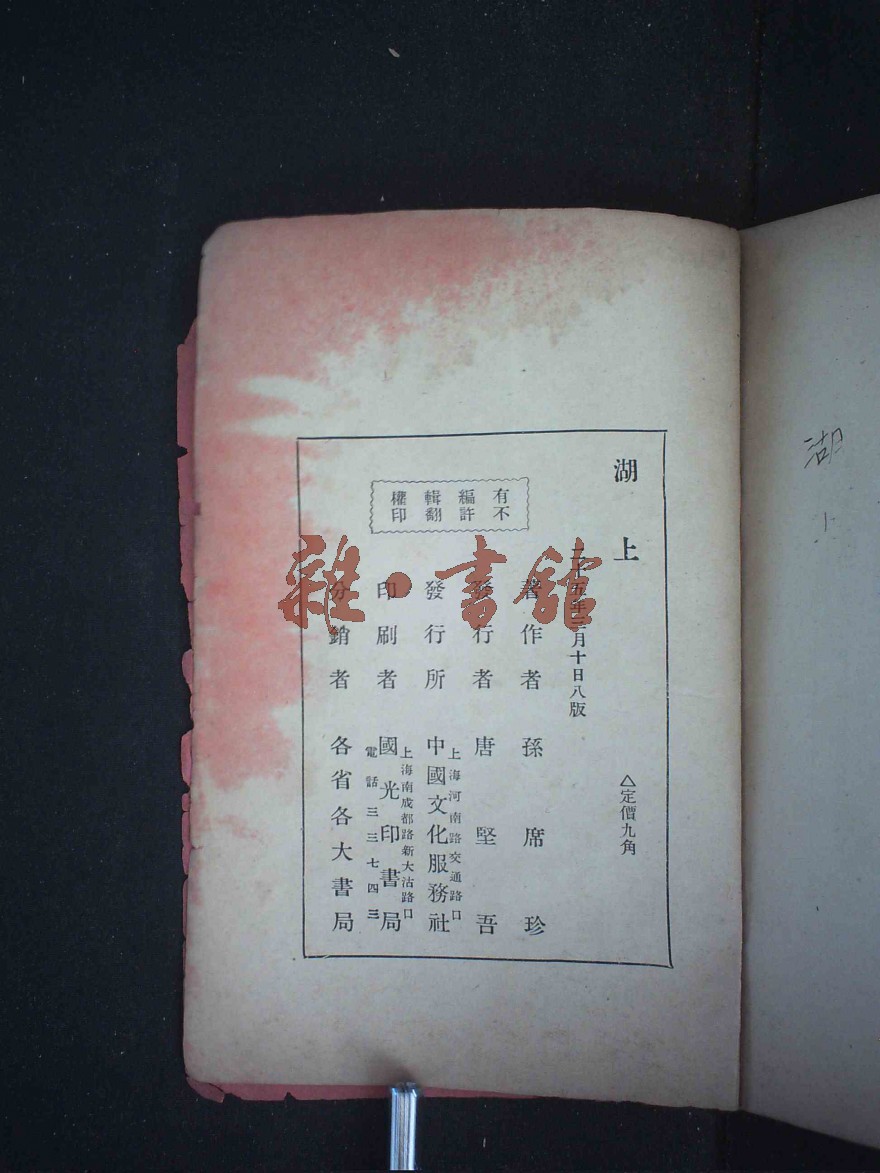 湖上
二十五年三月十日八版
△定價九角
有編輯權
不許翻印
著作者 孫席珍
發行者 唐堅吾
上海河南路交通路口
發行所 中國文化服務社
上海南成都路新大沽路口
印刷者 國光印書局
電話三三七四三
分銷者 各省各大書局
湖上
雜·書館